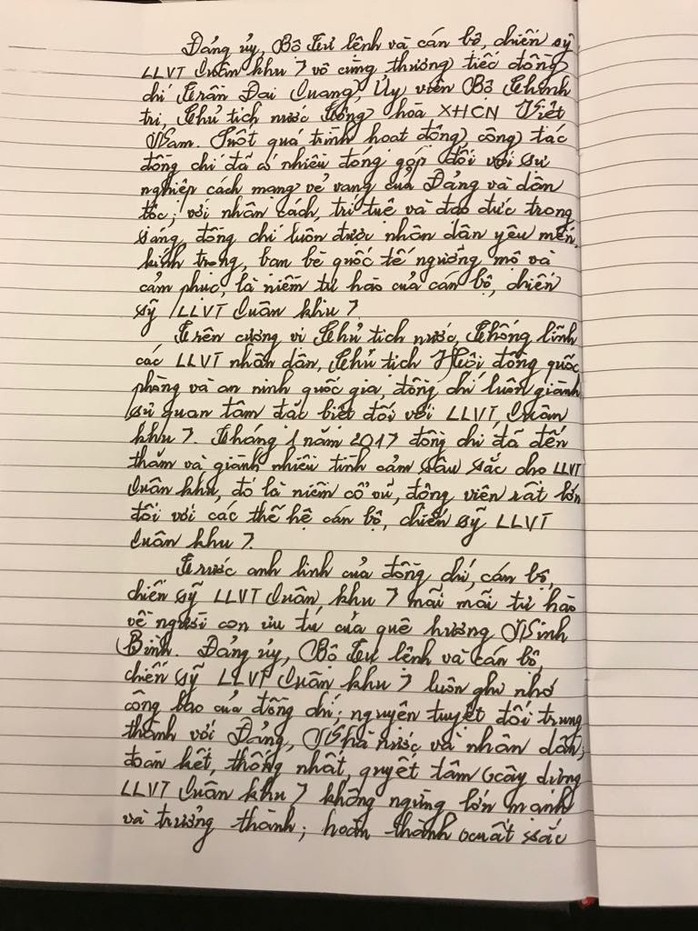 Đảng ủy, Bộ Tư lệnh và cán bộ, chiến sỹ
LLVT Quân khu 7 vô cùng thương tiếc đồng
chí Trần Đại Quang, Ủy viên Bộ Chính
trị, Chủ tịch nước Cộng hòa XHCN Việt
Nam. Suốt quá trình hoạt động, công tác
đồng chí đã có nhiều đóng góp đối với sự
nghiệp cách mạng vẻ vang của Đảng và dân
tộc; với nhân cách, trí tuệ và đạo đức trong
sáng, đồng chí luôn được nhân dân yêu mến,
kính trọng, bạn bè quốc tế ngưỡng mộ và
cảm phục, là niềm tự hào của cán bộ, chiến
sỹ LLVT Quân khu 7.
Trên cương vị Chủ tịch nước, Thống lĩnh
các LLVT nhân dân, Chủ tịch Hội đồng quốc
phòng và an ninh quốc gia, đồng chí luôn giành
sự quan tâm đặc biệt đối với LLVT Quân
khu 7. Tháng 1 năm 2017 đồng chí đã đến
thăm và giành nhiều tình cảm sâu sắc cho LLVT
Quân khu, đó là niềm cổ vũ, động viên rất lớn
đối với các thế hệ cán bộ, chiến sỹ LLVT
Quân khu 7.
Trước anh linh của đồng chí, cán bộ,
chiến sỹ LLVT Quân khu 7 mãi mãi tự hào
về người con ưu tú của quê hương Ninh
Bình. Đảng ủy, Bộ Tư lệnh và cán bộ,
chiến sỹ LLVT Quân khu 7 luôn ghi nhớ
công lao của đồng chí; nguyện tuyệt đối trung
thành với Đảng, Nhà nước và nhân dân;
đoàn kết, thống nhất, quyết tâm xây dựng
LLVT Quân khu 7 không ngừng lớn mạnh
và trưởng thành; hoàn thành xuất sắc